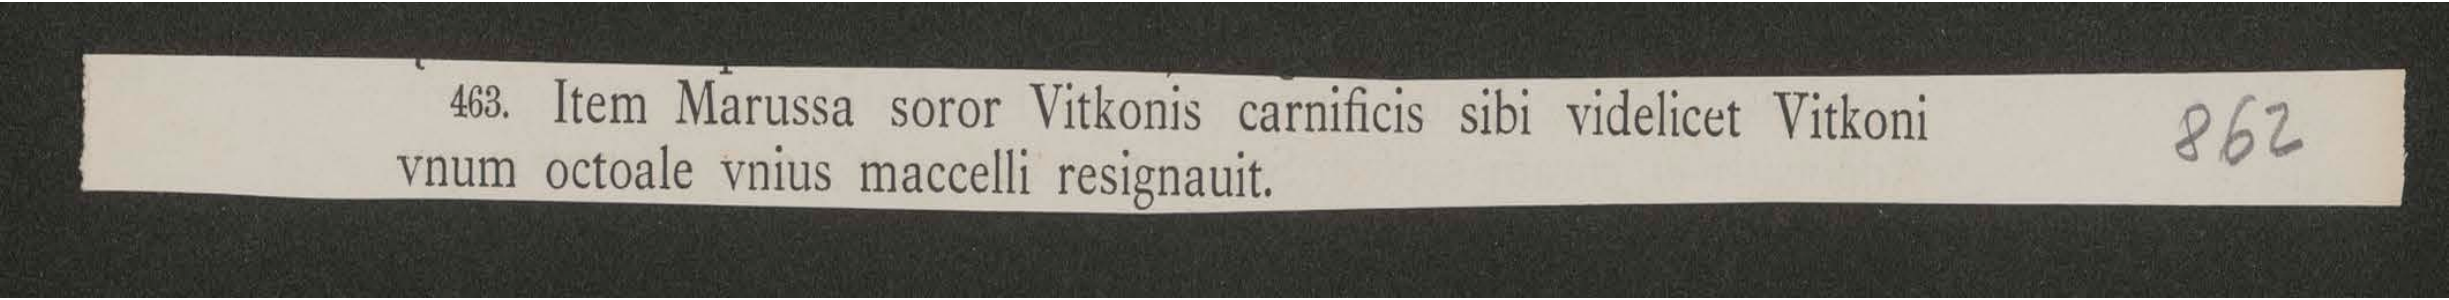 463. Item Marussa soror Vitkonis carnificis sibi videlicet Vitkoni 862
vnum octoale vnius maccelli resignauit.